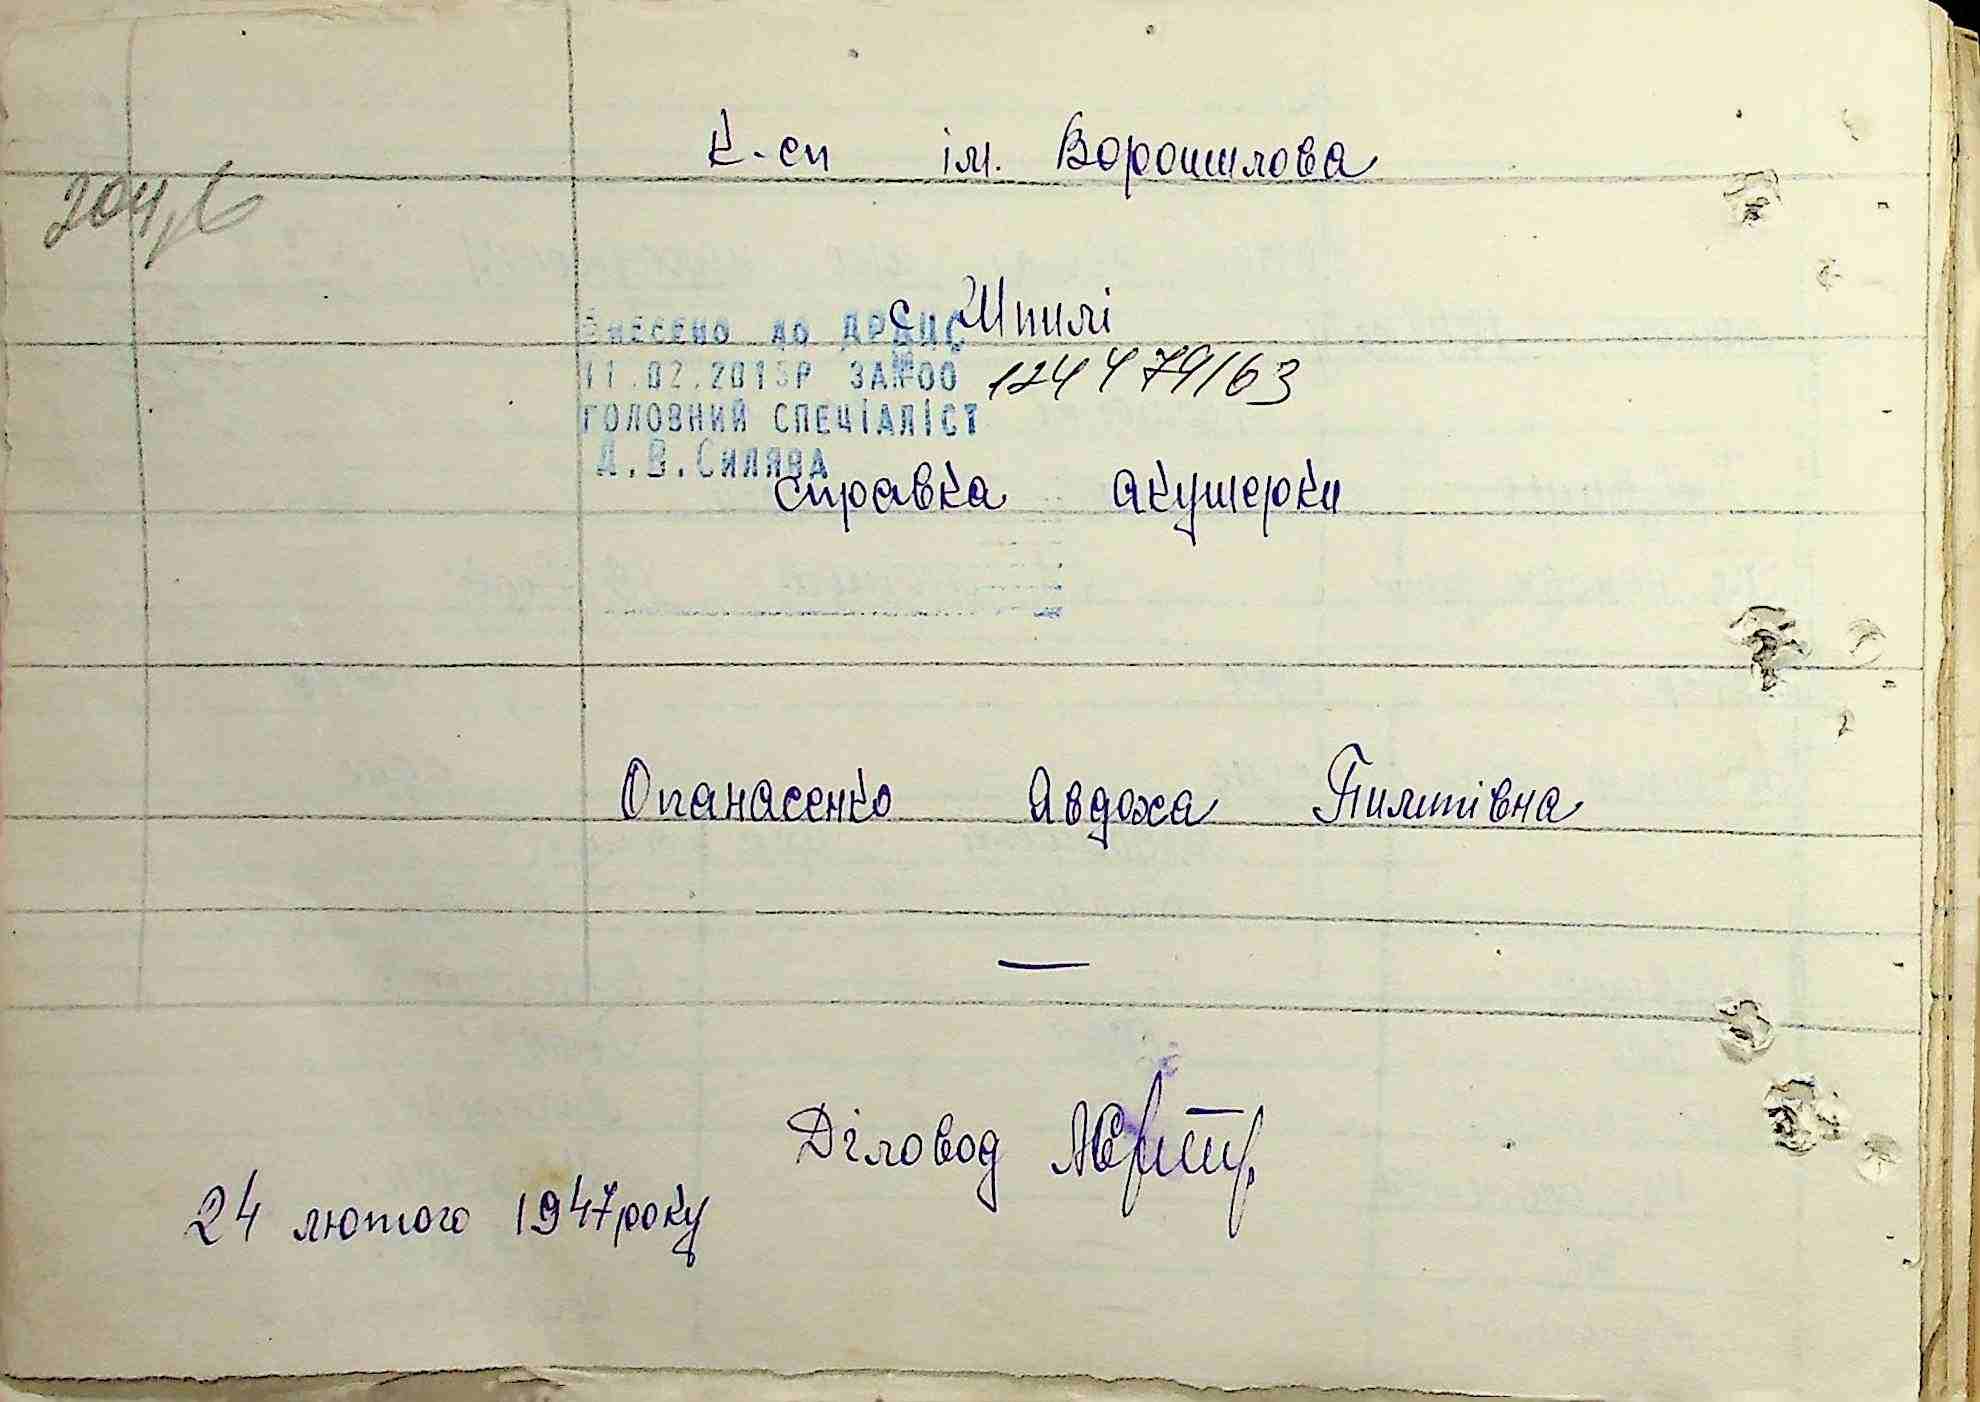 К-сп ім. Ворошилова
204
с. Шпилі
ВНЕСЕНО ДО ДРАЦС
11.02.2013Р ЗА№00 124479/63
ГОЛОВНИЙ СПЕЦІАЛІСТ
Д.В.Силява
справка акушерки
Опанасенко Авдоха Пилипівна
—
Діловод
24 лютого 1947 року